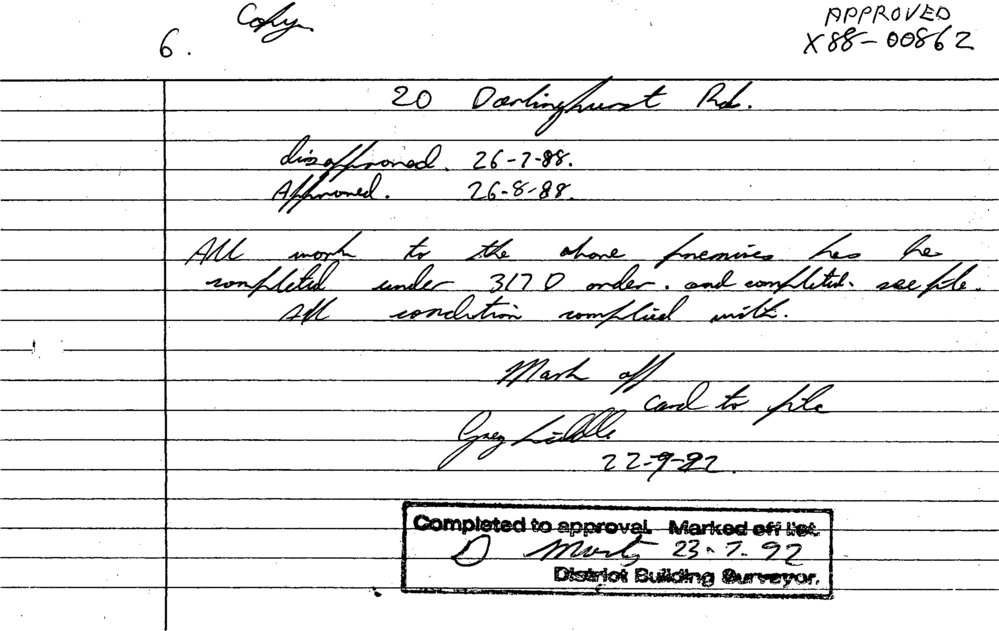 Copy
APPROVED
6.
X88-00862
20 Darlinghurst Rd.
disapproved. 26-7-88.
Approved. 26-8-88.
All work to the above premises has be
completed under 317D order. and completed. see file.
All condition complied with.
Mark off
card to file
Greg Liddle
22-9-92.
Completed to approval. Marked off list.
23-7-92
District Building Surveyor.